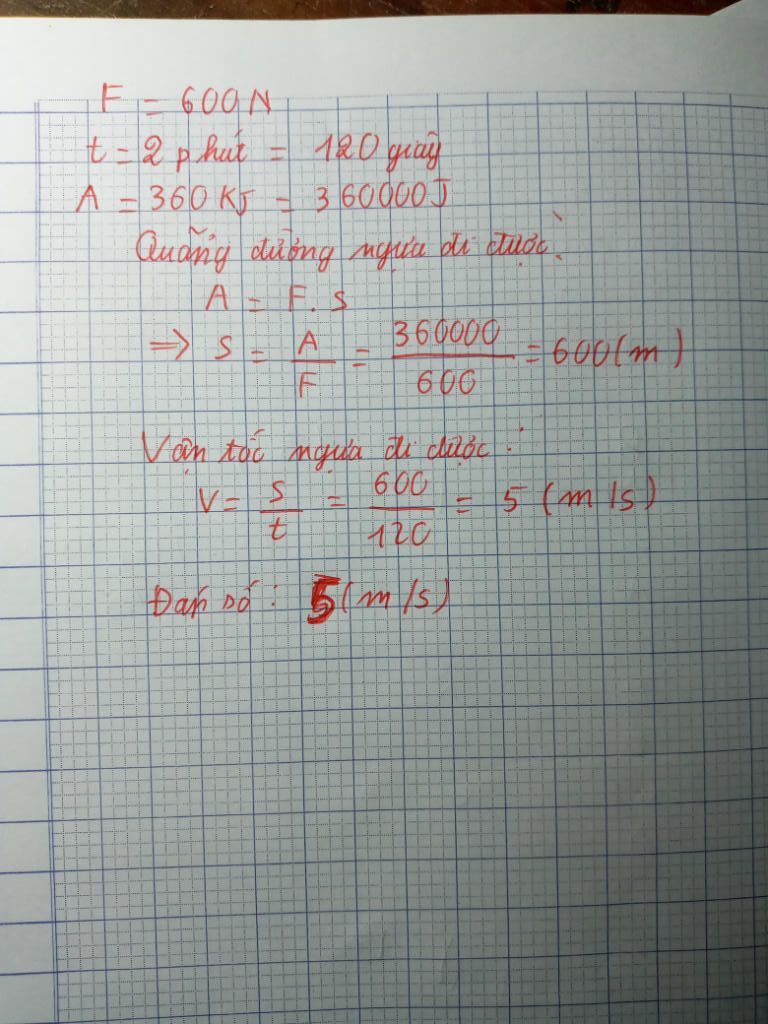 F = 600N
t = 2 phút = 120 giây
A = 360 KJ = 360000J
Quãng đường ngựa đi được:
A = F. s
=> s = A/F = 360000/600 = 600 (m)
Vận tốc ngựa đi được:
V = s/t = 600/120 = 5 (m/s)
Đáp số: 5 (m/s)